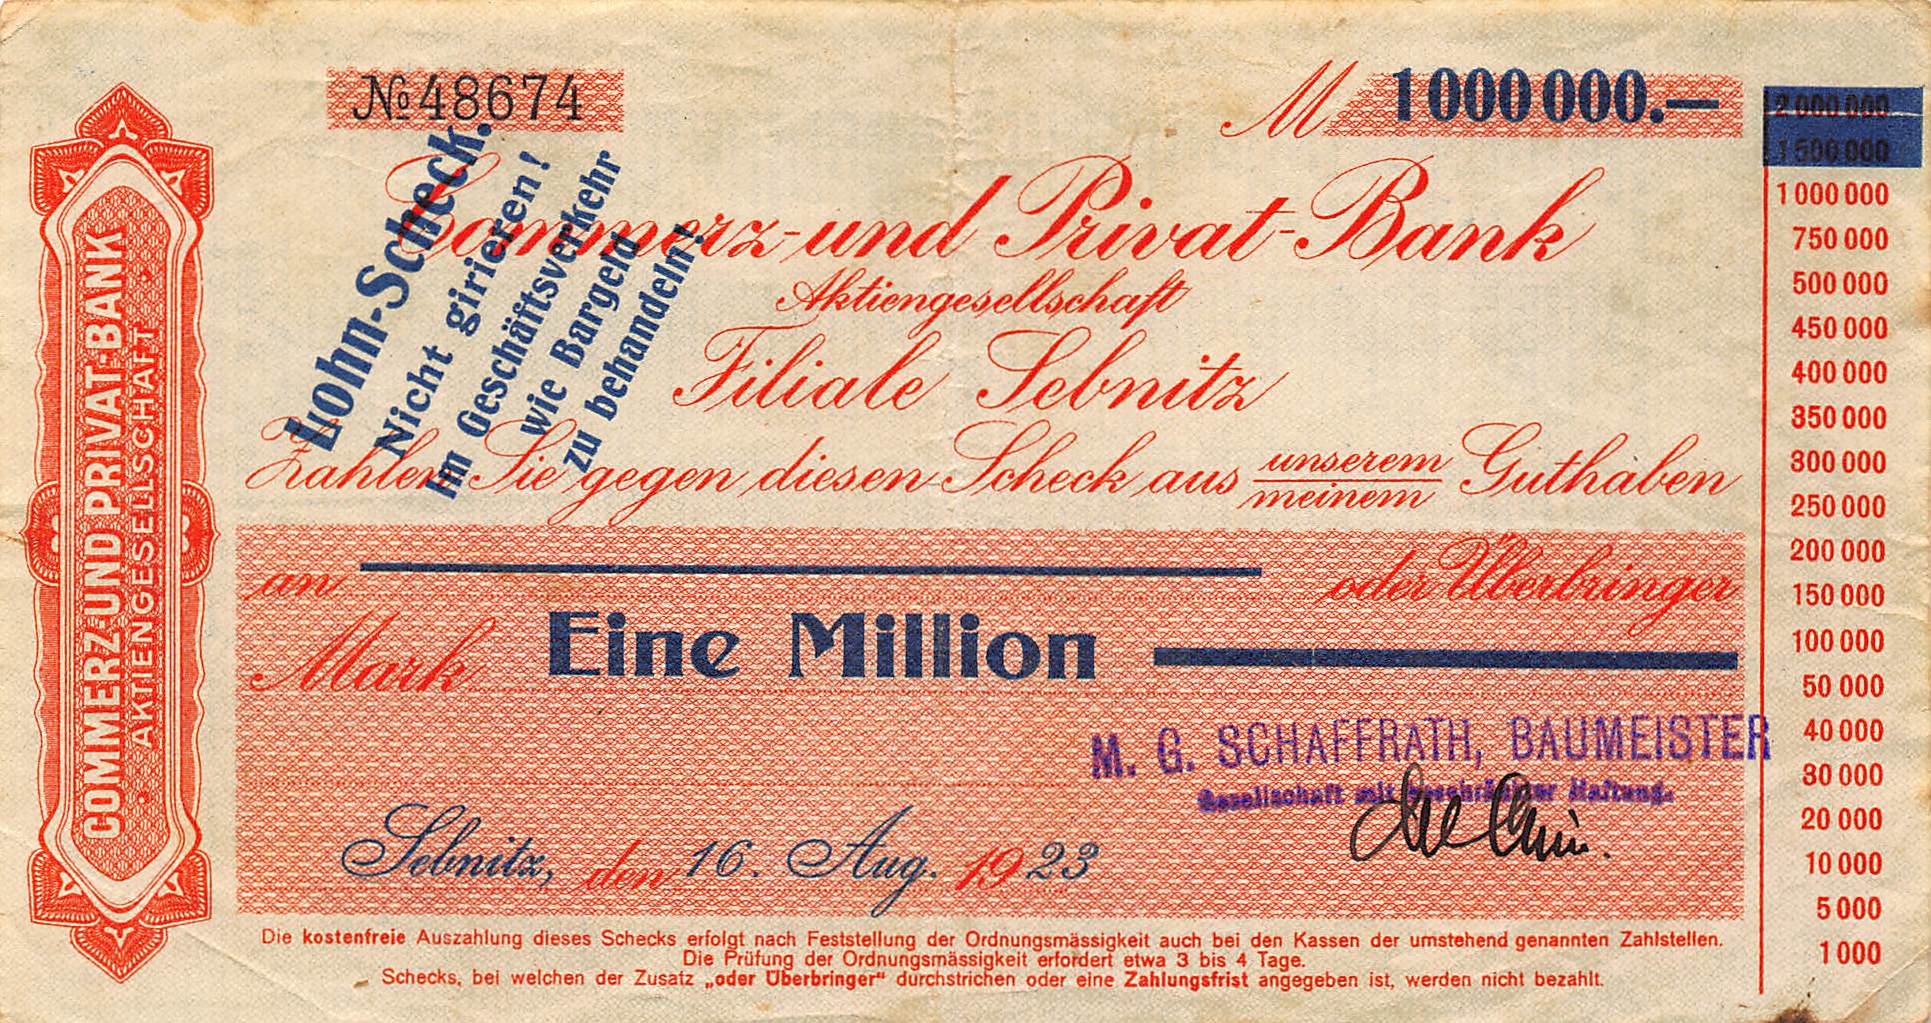 COMMERZ-UND PRIVAT-BANK
AKTIENGESELLSCHAFT
№ 48674
M 1000000.—
Lohn-Scheck.
Nicht girieren!
Im Geschäftsverkehr
wie Bargeld
zu behandeln!
Commerz-und Privat-Bank
Aktiengesellschaft
Filiale Sebnitz
Zahlen Sie gegen diesen Scheck aus unserem Guthaben
meinem
an oder Überbringer
Mark Eine Million
M. G. SCHAFFRATH, BAUMEISTER
Gesellschaft mit beschränkter Haftung.
Sebnitz, den 16. Aug. 1923
Die kostenfreie Auszahlung dieses Schecks erfolgt nach Feststellung der Ordnungsmässigkeit auch bei den Kassen der umstehend genannten Zahlstellen.
Die Prüfung der Ordnungsmässigkeit erfordert etwa 3 bis 4 Tage.
Schecks, bei welchen der Zusatz „oder Überbringer“ durchstrichen oder eine Zahlungsfrist angegeben ist, werden nicht bezahlt.
2 000 000
1 500 000
1 000 000
750 000
500 000
450 000
400 000
350 000
300 000
250 000
200 000
150 000
100 000
50 000
40 000
30 000
20 000
10 000
5 000
1 000